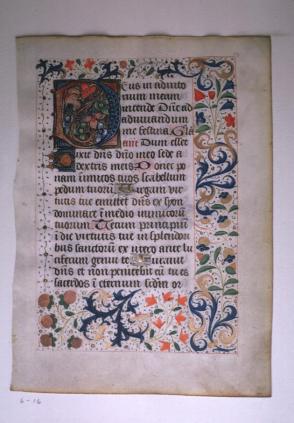 eus in adiuto
rium meum
intende Dñe ad
adiuuandum
me festina Gla
ant Dum esset
Dixit dñs dño meo sede a
dextris meis Donec po
nam inimicos tuos scabellum
pedum tuorū Virgam vir
tutis tue emittet dñs ex syon
dominare ī medio inimicorū
tuorum Tecum principiū
ī die virtutis tue in splendori
bus sanctorū ex utero ante lu
ciferum genui te Iurauit
dñs et non penitebit eū tu es
sacerdos ī eternum scdm or
6-16